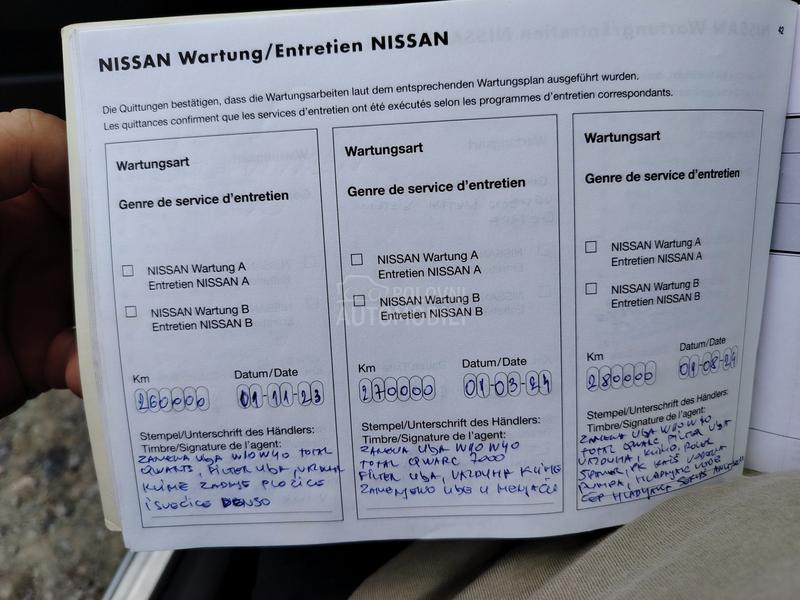 NISSAN Wartung/Entretien NISSAN
42
Die Quittungen bestätigen, dass die Wartungsarbeiten laut dem entsprechenden Wartungsplan ausgeführt wurden.
Les quittances confirment que les services d'entretien ont été exécutés selon les programmes d'entretien correspondants.
Wartungsart
Genre de service d'entretien
NISSAN Wartung A
Entretien NISSAN A
NISSAN Wartung B
Entretien NISSAN B
Km
Datum/Date
260000
01-11-23
Stempel/Unterschrift des Händlers:
Timbre/Signature de l'agent:
ZAMENA ULJA W10W40 TOTAL
QWARTS, FILTER ULJA, VAZDUHA
KLIME ZADNJE PLOČICE
i SVEĆICE DENSO
Wartungsart
Genre de service d'entretien
NISSAN Wartung A
Entretien NISSAN A
NISSAN Wartung B
Entretien NISSAN B
Km
Datum/Date
270000
01-03-24
Stempel/Unterschrift des Händlers:
Timbre/Signature de l'agent:
ZAMENA ULJA W10W40
TOTAL QWARC 7000
FILTER ULJA, VAZDUHA KLIME
ZAMENJENO ULJE U MENJAČU
Wartungsart
Genre de service d'entretien
NISSAN Wartung A
Entretien NISSAN A
NISSAN Wartung B
Entretien NISSAN B
Km
Datum/Date
280000
01-08-24
Stempel/Unterschrift des Händlers:
Timbre/Signature de l'agent:
ZAMENA ULJA W10W40
TOTAL QWARC, FILTER ULJA
VAZDUHA, KLIME, ROLER
ŠPANER, PK KAIŠ VODENA
PUMPA, HLADNJAK VODE
ČEP HLADNJAKA
POLOVNI
AUTOMOBILI